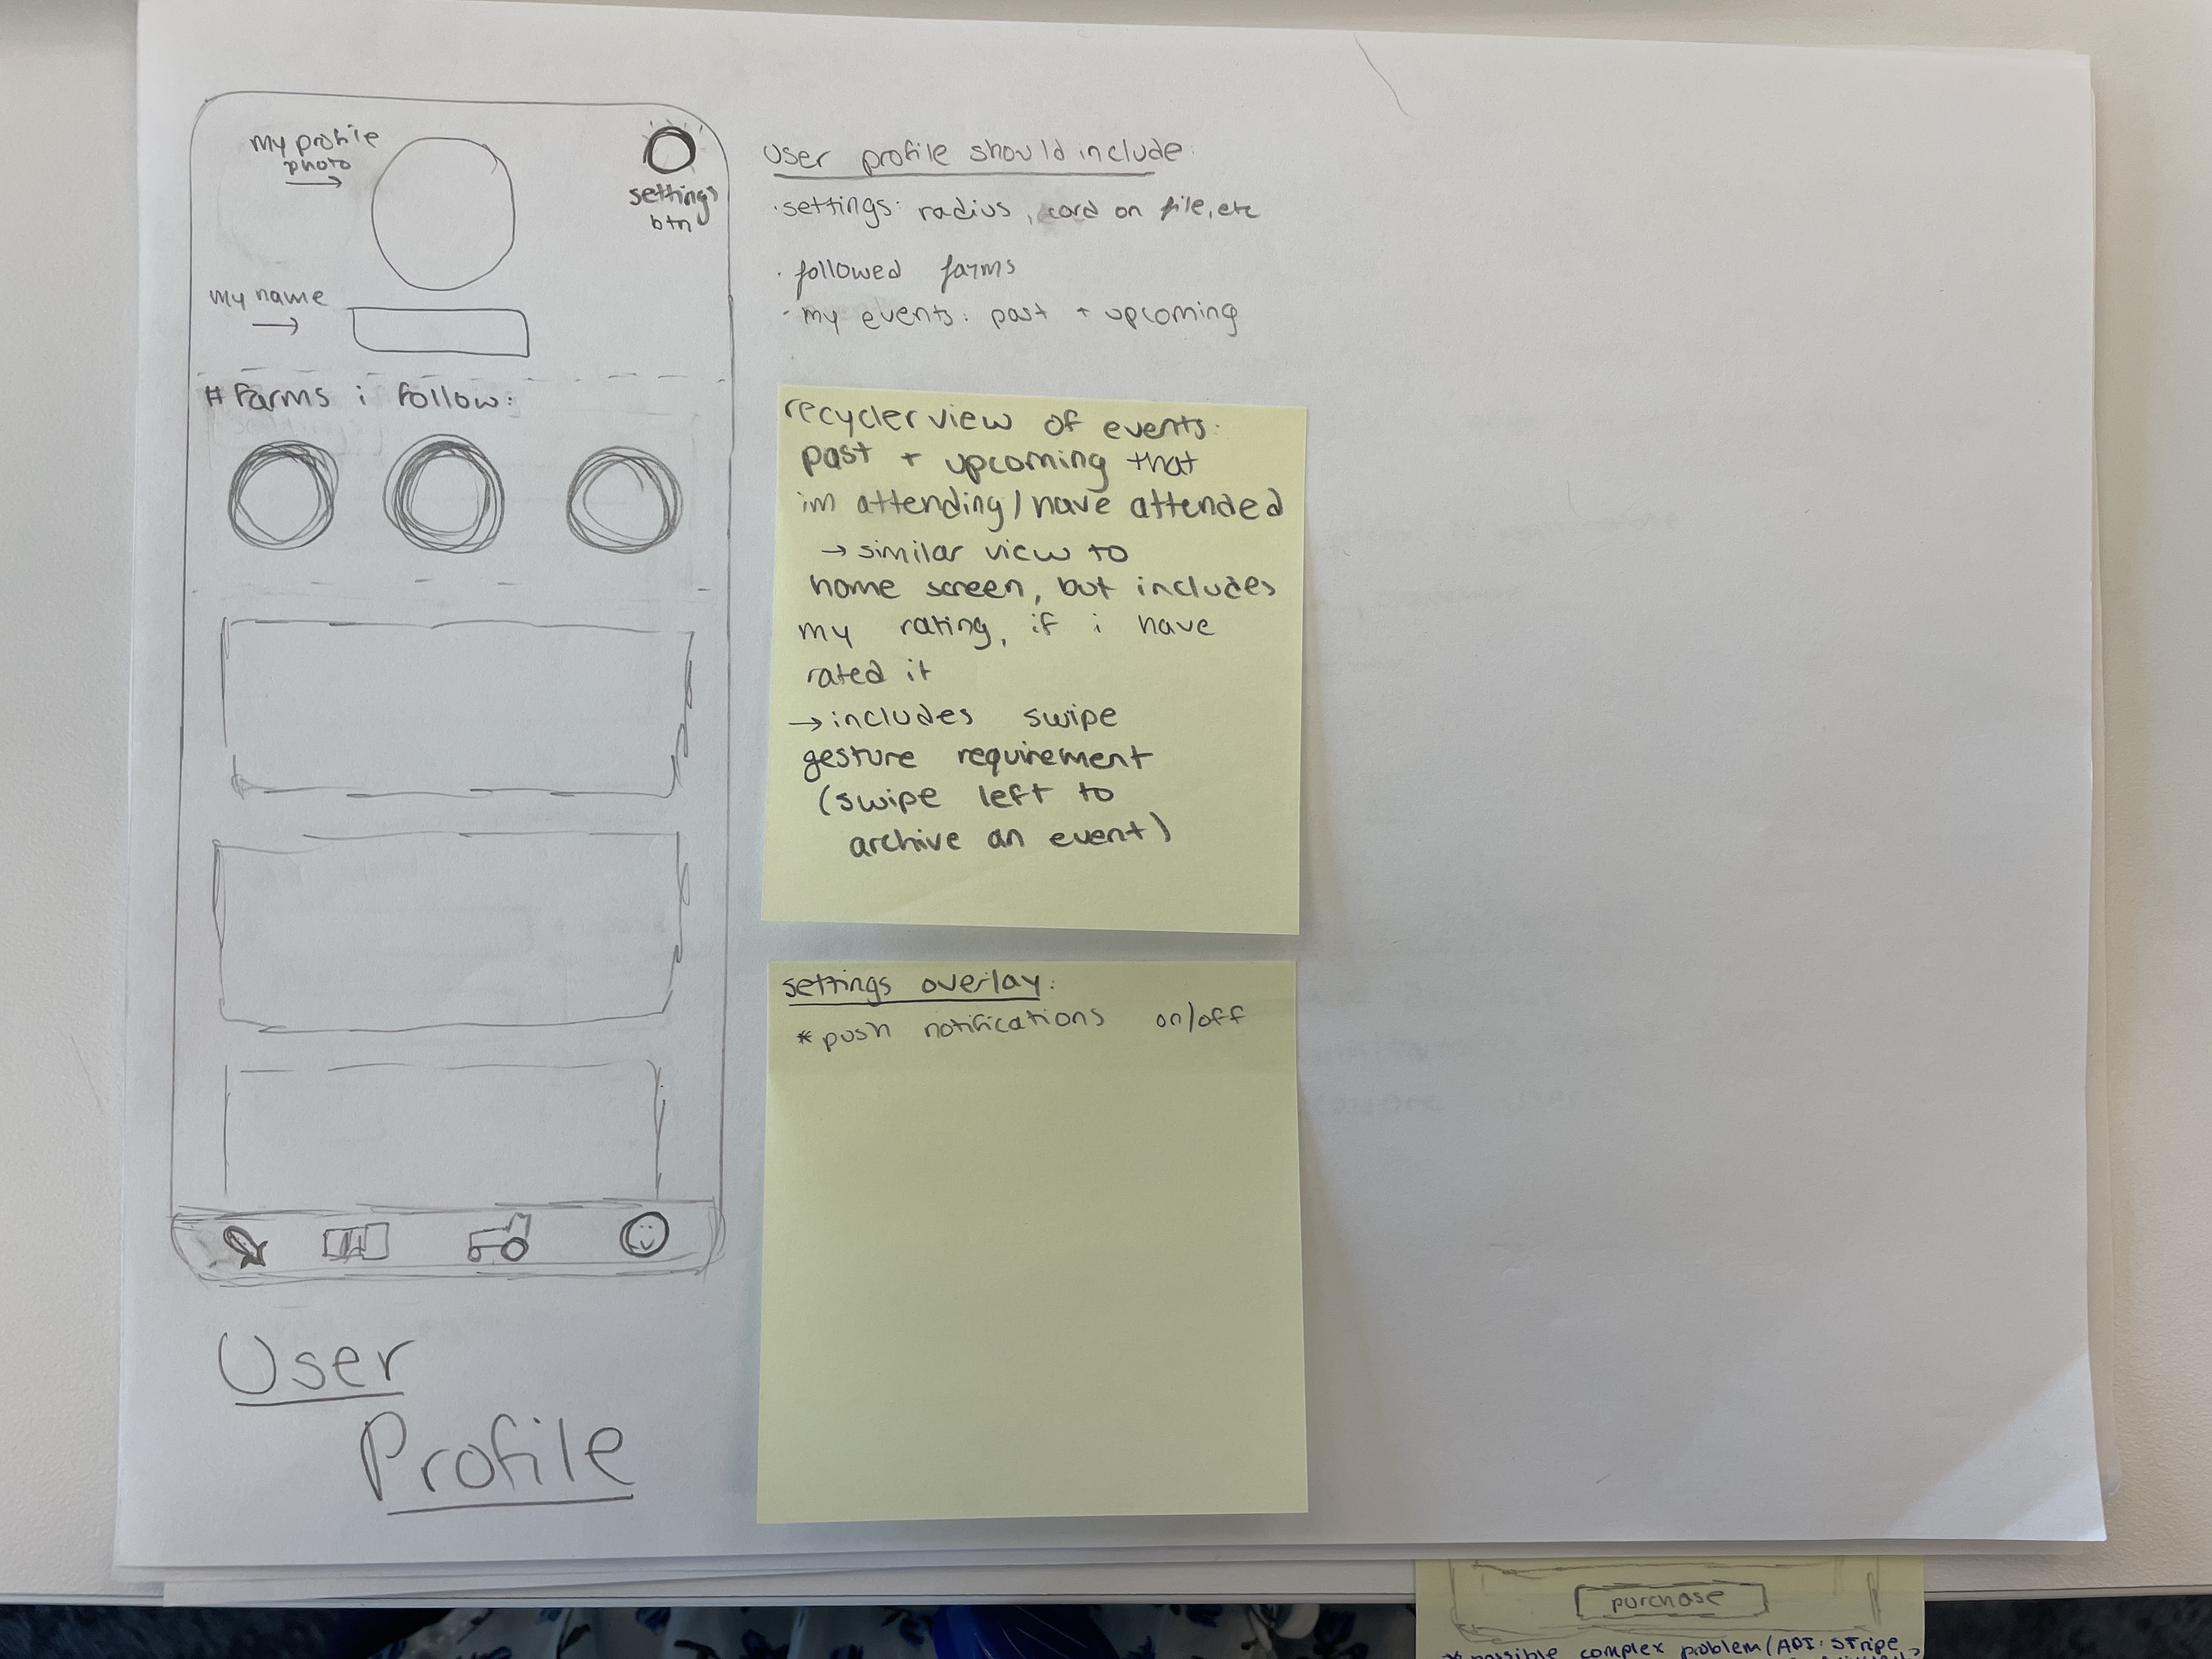 my profile
photo
settings
btn
my name
# Farms i follow:
User
Profile
User profile should include:
· settings: radius, card on file, etc
· followed farms
· my events: past + upcoming
recycler view of events:
past + upcoming that
im attending / have attended
→ similar view to
home screen, but includes
my rating, if i have
rated it
→ includes swipe
gesture requirement
(swipe left to
archive an event)
settings overlay:
* push notifications on/off
purchase
* possible complex problem (API: stripe